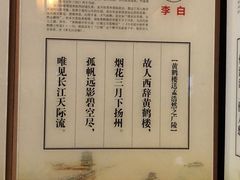 李白
【黄鹤楼送孟浩然之广陵】
故人西辞黄鹤楼，
烟花三月下扬州。
孤帆远影碧空尽，
唯见长江天际流。